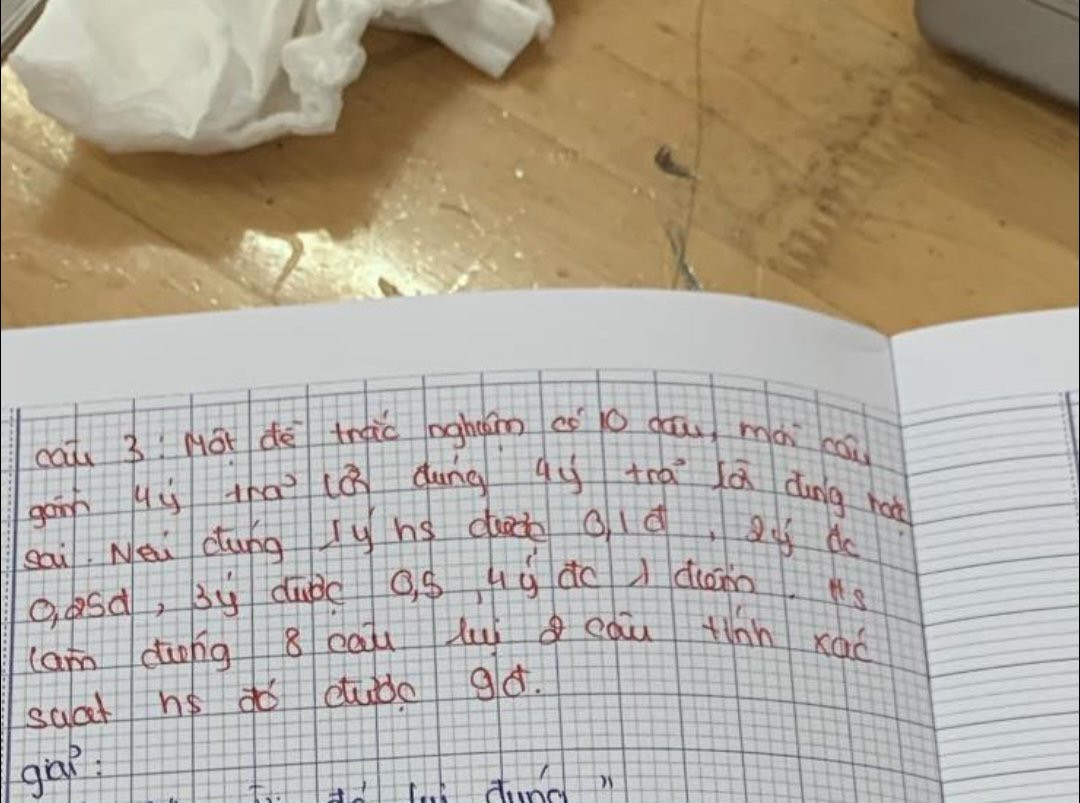 câu 3: Một đề trắc nghiệm có 10 câu, mỗi câu
gồm 4 ý trả lời đúng 4 ý trả lời đúng hoặc
sai. Nếu đúng 1 ý hs được 0,1 đ, 2 ý đc
0,25đ, 3 ý được 0,5, 4 ý đc 1 điểm. Hs
làm đúng 8 câu lụi 2 câu tính xác
suất hs đó được 9đ.
giải:
lụi đúng"